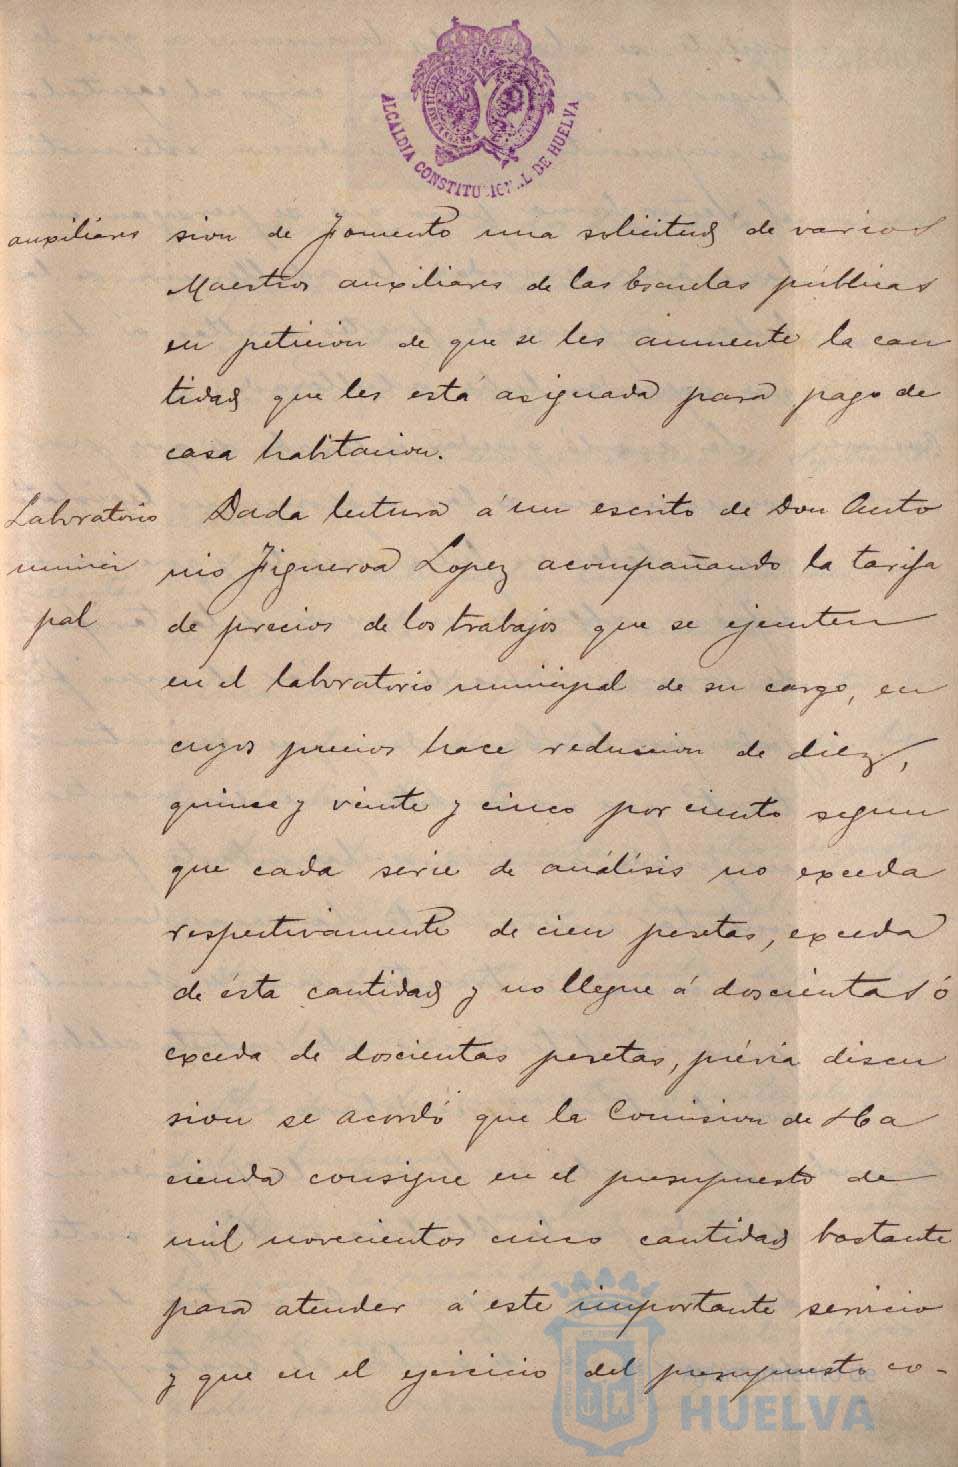 ALCALDIA CONSTITUCIONAL DE HUELVA
auxiliares
sion de Fomento una solicitud de varios
Maestros auxiliares de las Escuelas públicas
en peticion de que se les aumente la can
tidad que les está asignada para pago de
casa habitacion.
Laboratorio
munici
pal
Dada lectura á un escrito de Don Anto
nio Figueroa Lopez acompañando la tarifa
de precios de los trabajos que se ejecuten
en el laboratorio municipal de su cargo, en
cuyos precios hace reduccion de diez,
quince y veinte y cinco por ciento segun
que cada serie de análisis no exceda
respectivamente de cien pesetas, exceda
de ésta cantidad y no llegue á doscientas ó
exceda de doscientas pesetas, prévia discu
sion se acordó que la Comision de Ha
cienda consigne en el presupuesto de
mil novecientos cinco cantidad bastante
para atender á este importante servicio
y que en el ejercicio del presupuesto co-
Ayuntamiento de
HUELVA